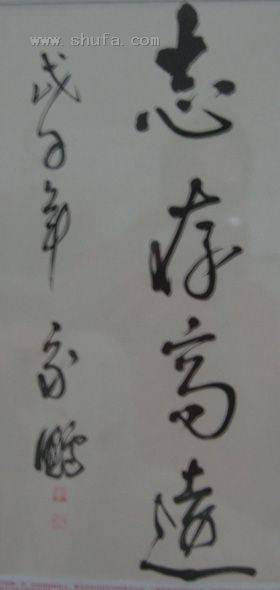 志存高遠
戊子年 家鵬
www.shufa.com